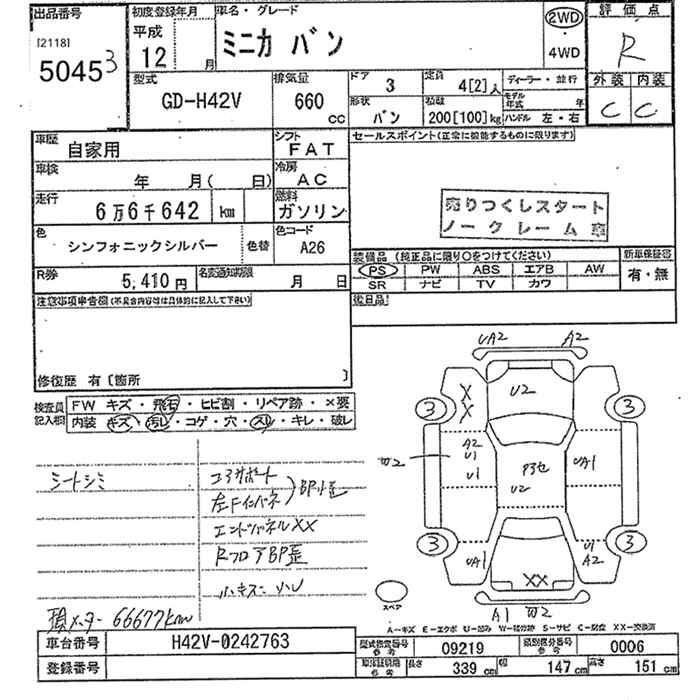 出品番号
[2118]
5045 3
初度登録年月
平成
12 月
車名・グレード
ミニカ バン
2WD
・
4WD
評価点
R
外装 内装
C C
型式
GD-H42V
排気量
660 CC
ドア 3
定員 4[2]人
ディーラー・並行
形状 バン
積載 200[100]kg
モデル年式 年
ハンドル 左・右
車歴
自家用
シフト
FAT
車検
年 月( 日)
冷房
AC
走行
6万6千642 km
燃料
ガソリン
色
シンフォニックシルバー
色替
色コード
A26
R券 5,410円
名変通知期限 月 日
セールスポイント(正常に機能するものに限ります)
売りつくしスタート
ノークレーム
装備品 (純正品に限り○をつけてください)
新車保証書
PS PW ABS エアB AW
SR ナビ TV カワ
有・無
後日品
注意事項申告欄(不具合内容等は具体的に記入して下さい)
修復歴 有〔箇所 〕
検査員記入欄
FW キズ・飛石・ヒビ割・リペア跡・×要
内装 キズ・汚レ・コゲ・穴・スレ・キレ・破レ
シートシミ
コアサポート
左Fインパネ
BP小歪
エンドパネルXX
RフロアBP歪
小キズ・凹
積メーター 66677km
UA2 A2
X
X
U2
3 3
A2
U1
U1
P3セ
U2
UA1
3 3
UA1
U1
A2
XX
A1
スペア
A-キズ E-エクボ U-凹み W-補修跡 S-サビ C-腐食 XX-交換済
車台番号 H42V-0242763
登録番号
型式指定番号 参考 09219
類別区分番号 参考 0006
車体証明用 参考 長さ 339 cm 幅 147 cm 高さ 151 cm